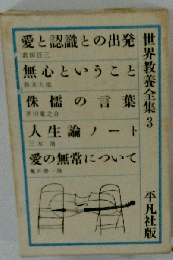 世界教養全集 3
愛と認識との出発
倉田百三
無心ということ
鈴木大拙
侏儒の言葉
芥川龍之介
人生論ノート
三木清
愛の無常について
亀井勝一郎
平凡社版